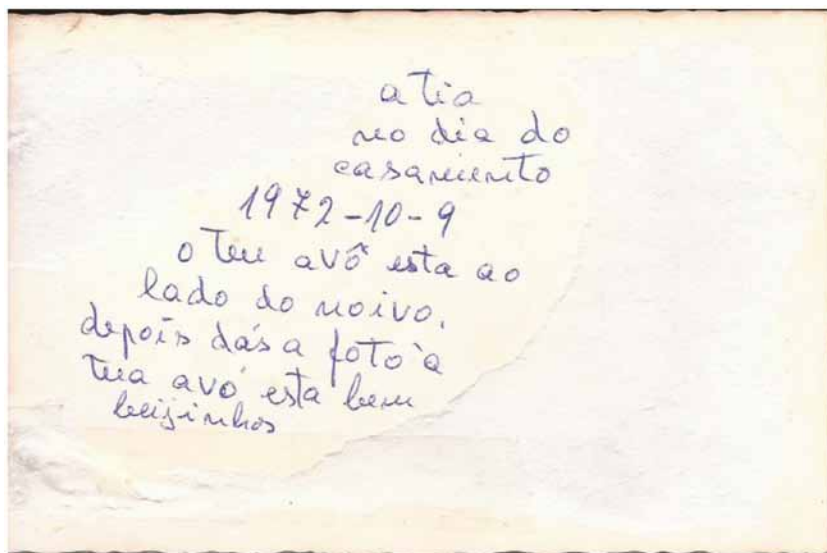 a tia
no dia do
casamento
1972-10-9
o teu avô esta ao
lado do noivo.
depois dás a foto à
tua avó esta bem
beijinhos